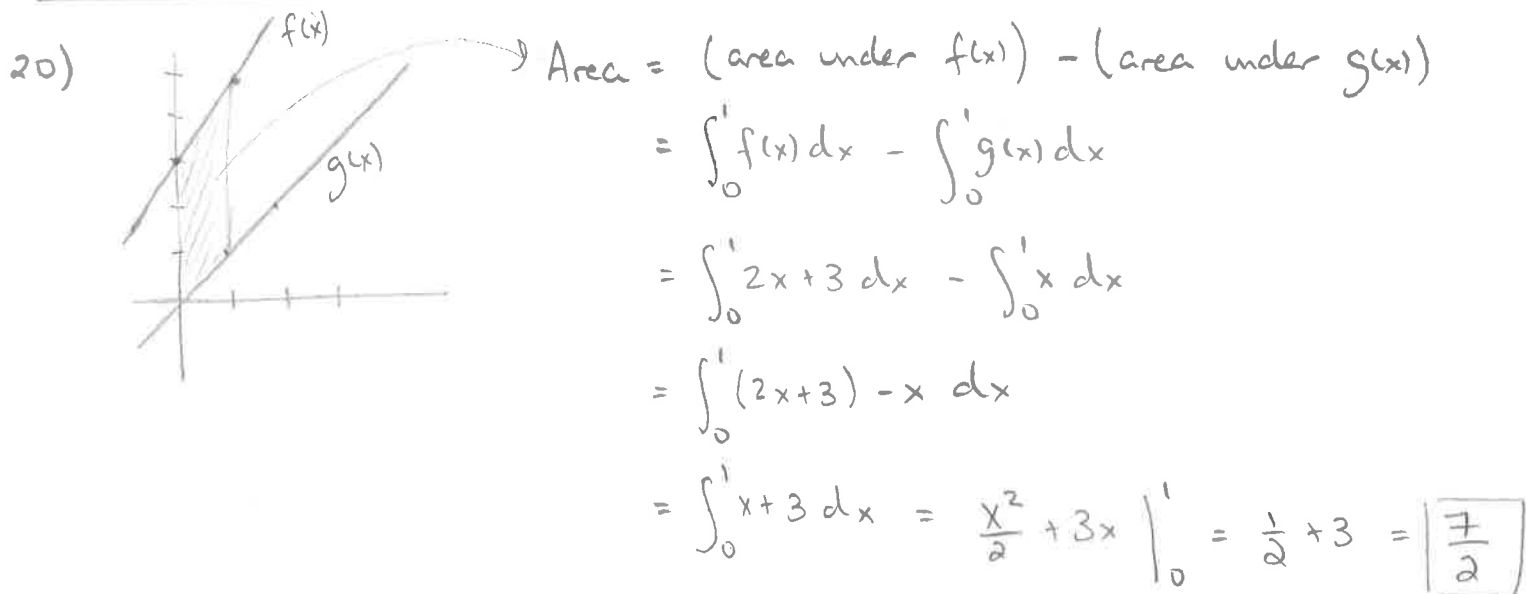 20)
f(x)
g(x)
Area = (area under f(x)) - (area under g(x))
= ∫₀¹ f(x) dx - ∫₀¹ g(x) dx
= ∫₀¹ 2x + 3 dx - ∫₀¹ x dx
= ∫₀¹ (2x+3) - x dx
= ∫₀¹ x + 3 dx = x²/2 + 3x |₀¹ = 1/2 + 3 = 7/2